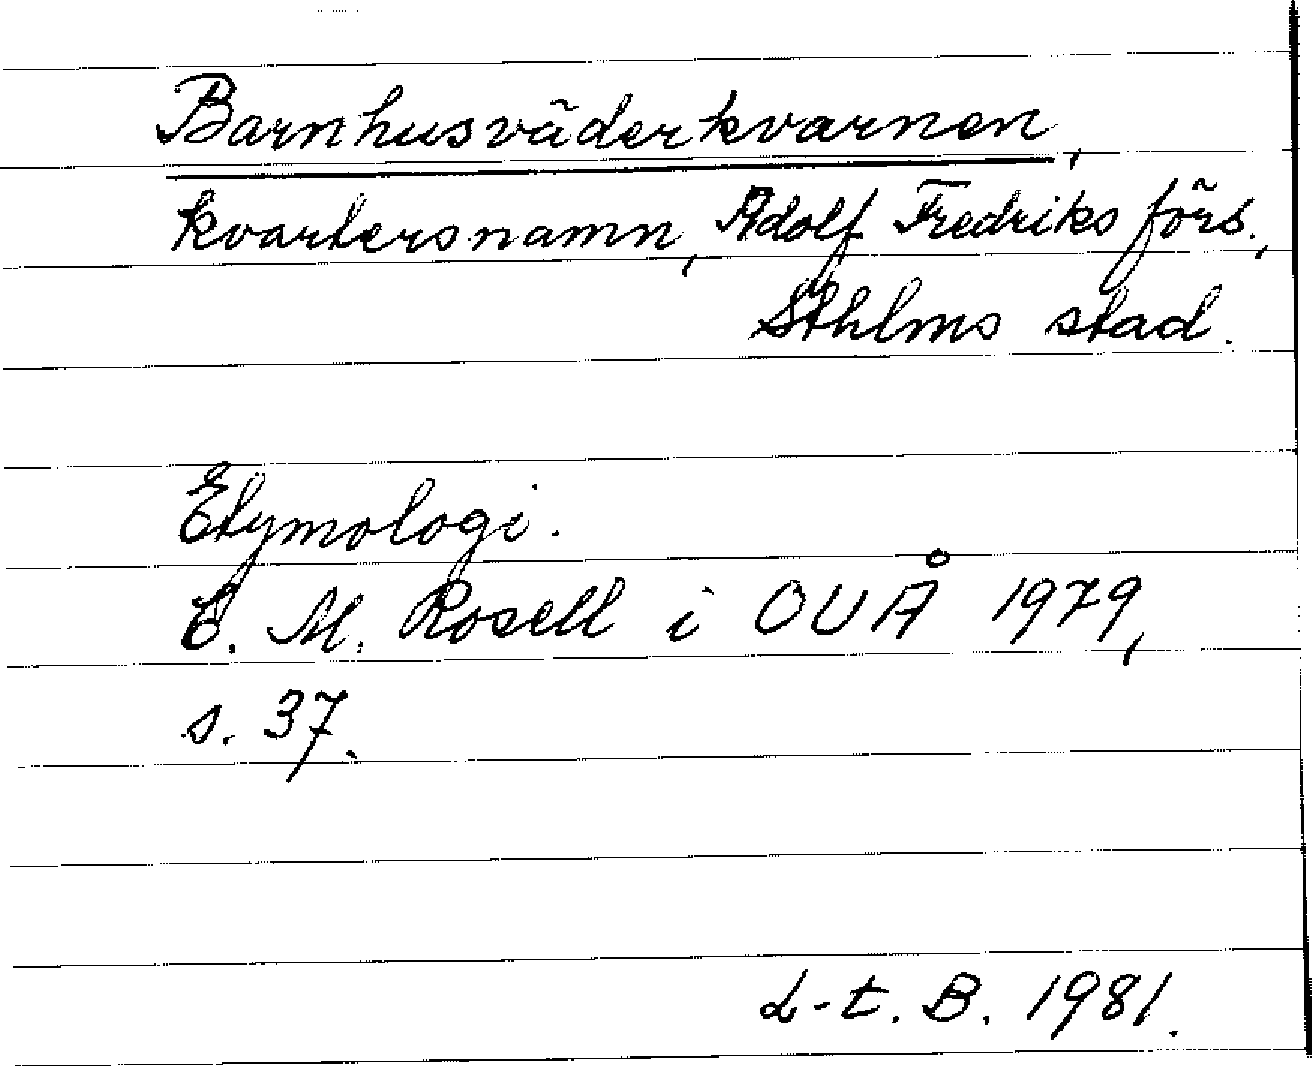 Barnhusväderkvarnen,
kvartersnamn, Adolf Fredriks förs.,
Sthlms stad.
Etymologi.
C. M. Rosell i OUÅ 1979,
s. 37.
L-t. B. 1981.